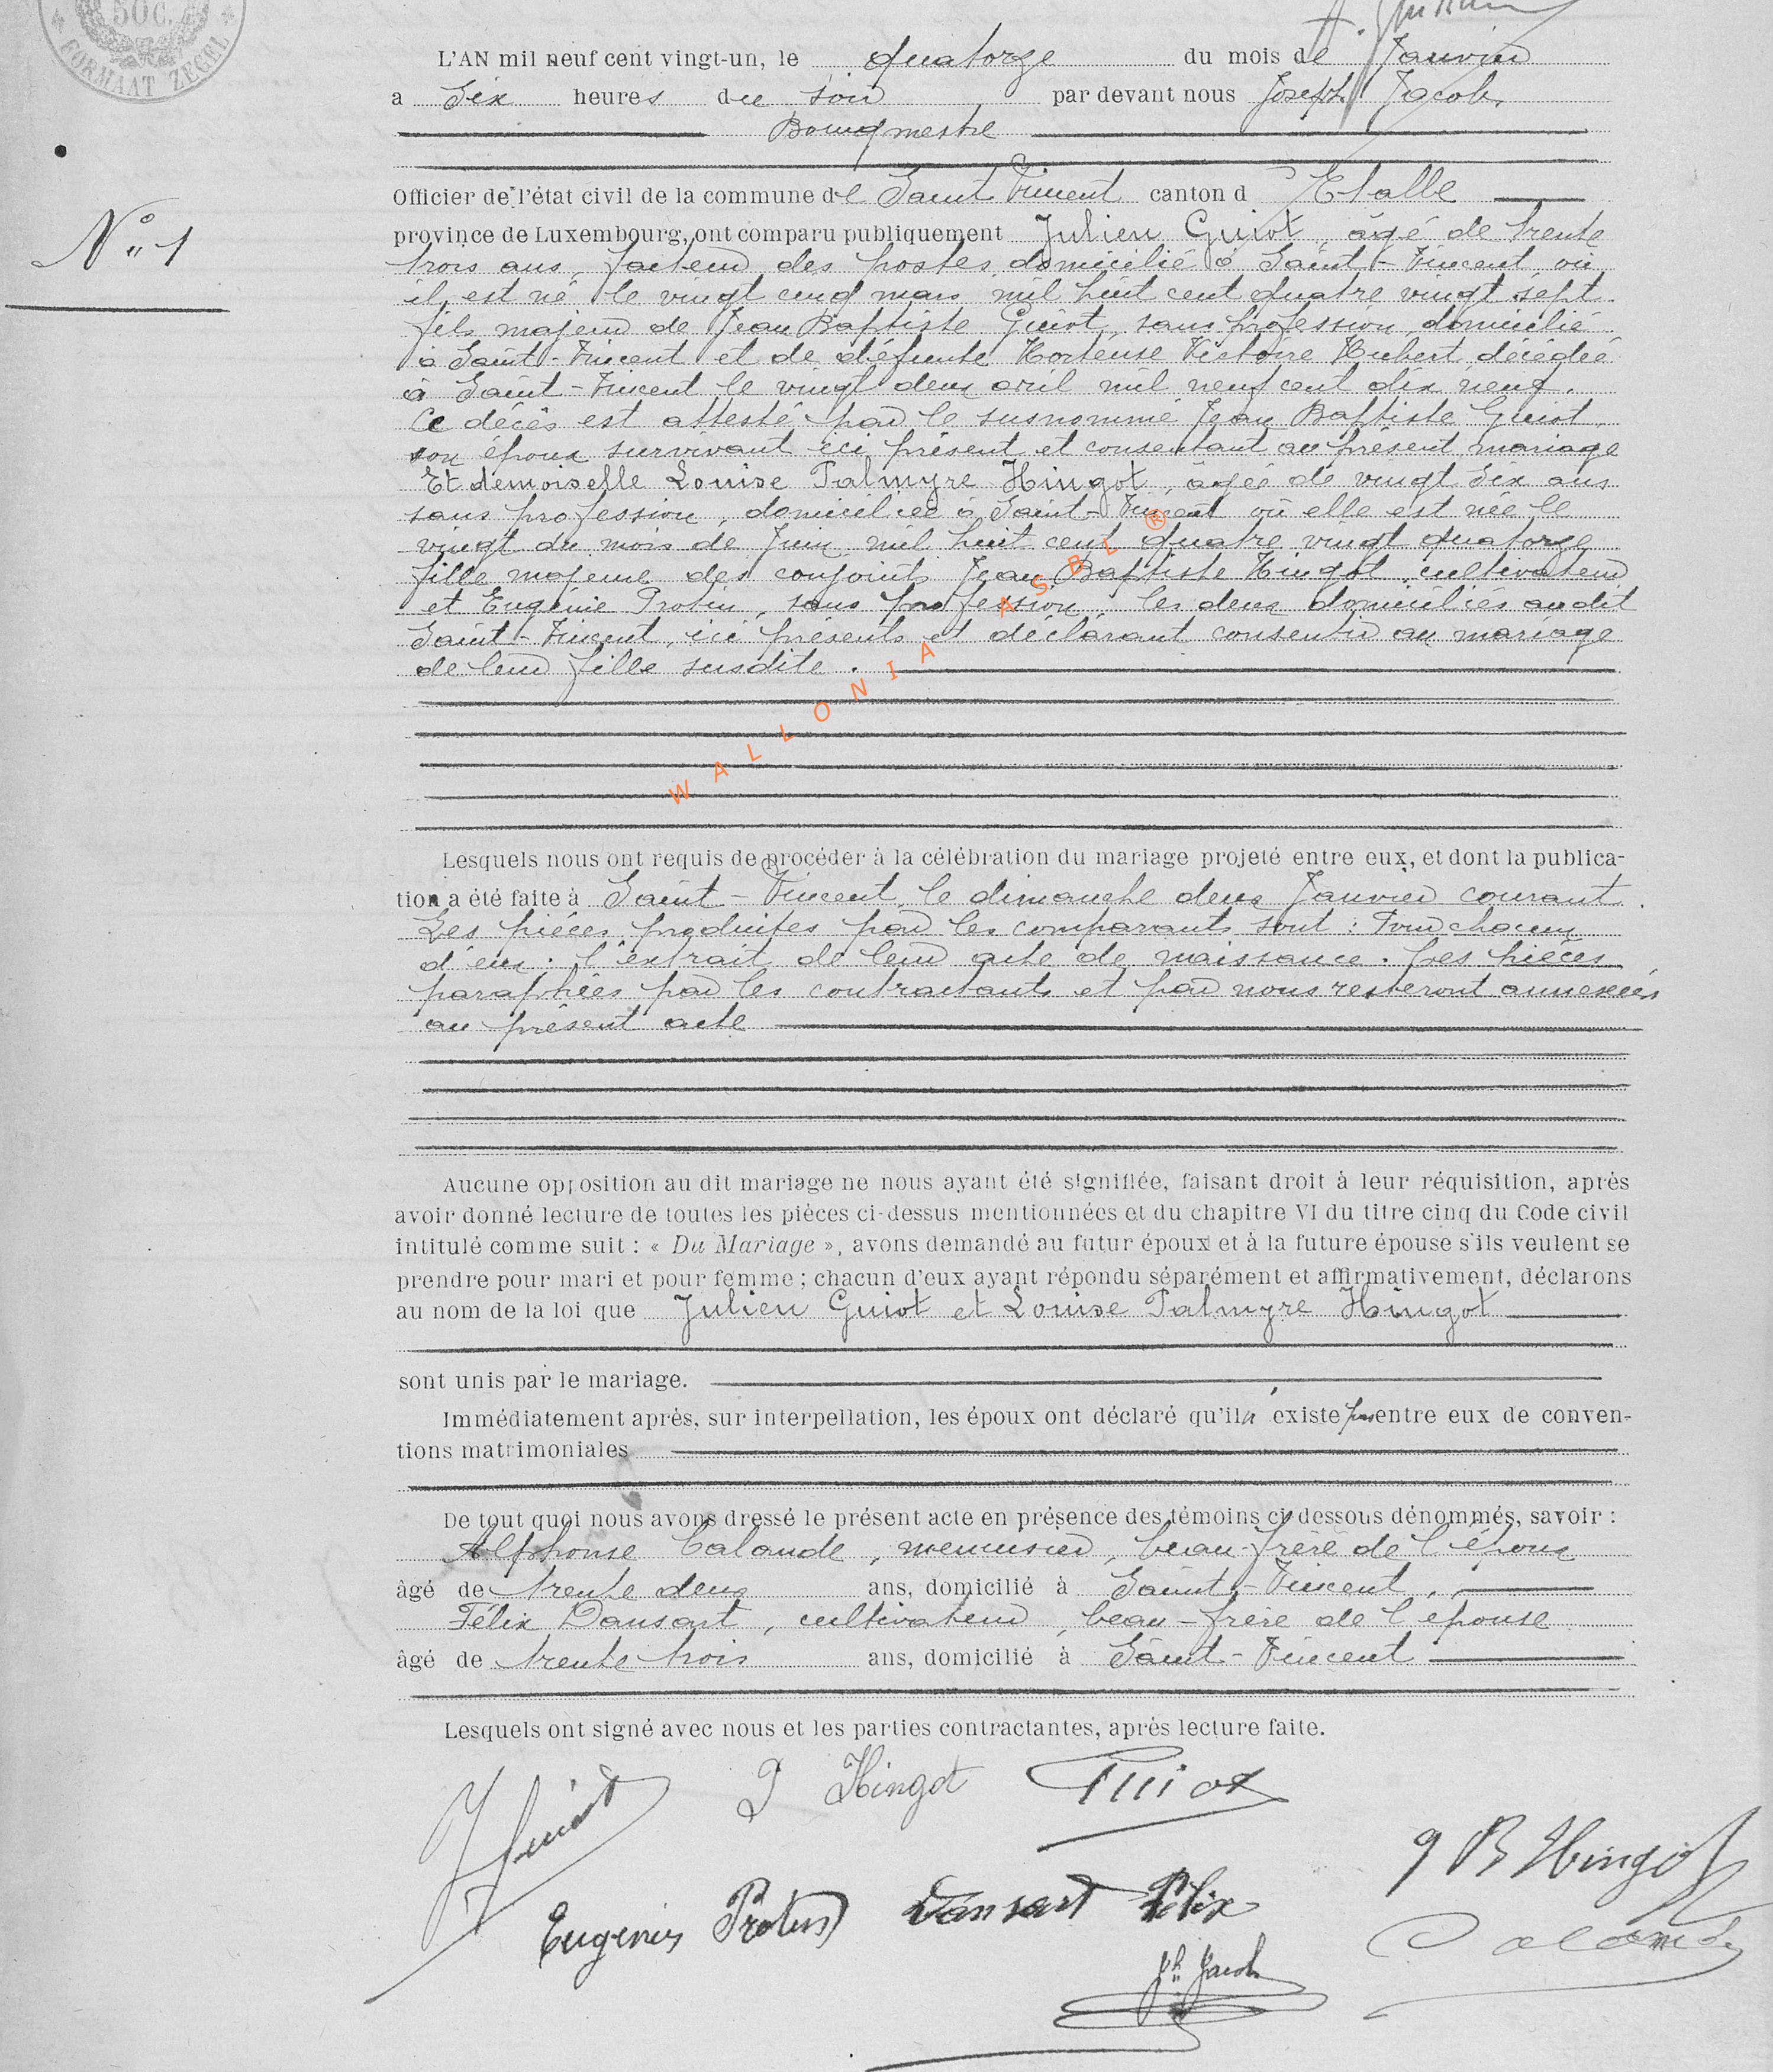 50C.
FORMAAT ZEGEL
L'AN mil neuf cent vingt-un, le quatorze du mois de Janvier
a Six heures du soir par devant nous Joseph Jacob,
Bourgmestre
Officier de l'état civil de la commune de Saint Vincent canton d'Etalle
N° 1
province de Luxembourg, ont comparu publiquement Julien Guiot, âgé de trente
trois ans, facteur des postes domicilié à Saint-Vincent où
il est né le vingt cinq mars mil huit cent quatre vingt sept.
fils majeur de Jean Baptiste Guiot, sans profession, domicilié
à Saint-Vincent et de défunte Hortense Victoire Hubert décédée
à Saint-Vincent le vingt deux avril mil neuf cent dix neuf.
Ce décès est attesté par le susnommé Jean Baptiste Guiot,
son époux survivant ici présent et consentant au présent mariage
Et demoiselle Louise Palmyre Hingot, âgée de vingt six ans
sans profession, domiciliée à Saint-Vincent où elle est née le
vingt du mois de Juin mil huit cent quatre vingt quatorze
fille majeure des conjoints Jean Baptiste Hingot, cultivateur
et Eugénie Protin, sans profession, les deux domiciliés audit
Saint-Vincent, ici présents et déclarant consentir au mariage
de leur fille susdite.
WALLONIA ASBL ®
Lesquels nous ont requis de procéder à la célébration du mariage projeté entre eux, et dont la publica-
tion a été faite à Saint-Vincent, le dimanche deux Janvier courant.
Les pièces produites par les comparants sont : Pour chacun
d'eux : l'extrait de leur acte de naissance. Les pièces
paraphées par les contractants et par nous resteront annexées
au présent acte
Aucune opposition au dit mariage ne nous ayant été signifiée, faisant droit à leur réquisition, après
avoir donné lecture de toutes les pièces ci-dessus mentionnées et du chapitre VI du titre cinq du Code civil
intitulé comme suit : « Du Mariage », avons demandé au futur époux et à la future épouse s'ils veulent se
prendre pour mari et pour femme ; chacun d'eux ayant répondu séparément et affirmativement, déclarons
au nom de la loi que Julien Guiot et Louise Palmyre Hingot
sont unis par le mariage.
Immédiatement après, sur interpellation, les époux ont déclaré qu'il n'existe pas entre eux de conven-
tions matrimoniales
De tout quoi nous avons dressé le présent acte en présence des témoins ci dessous dénommés, savoir :
Alphonse Calande, menuisier, beau-frère de l'époux
âgé de trente deux ans, domicilié à Saint-Vincent.
Félix Dansart, cultivateur, beau-frère de l'épouse
âgé de trente trois ans, domicilié à Saint-Vincent
Lesquels ont signé avec nous et les parties contractantes, après lecture faite.
J Guiot L Hingot Guiot
J B Hingot
Eugénie Protin Dansart Félix
Calande
Jh Jacob